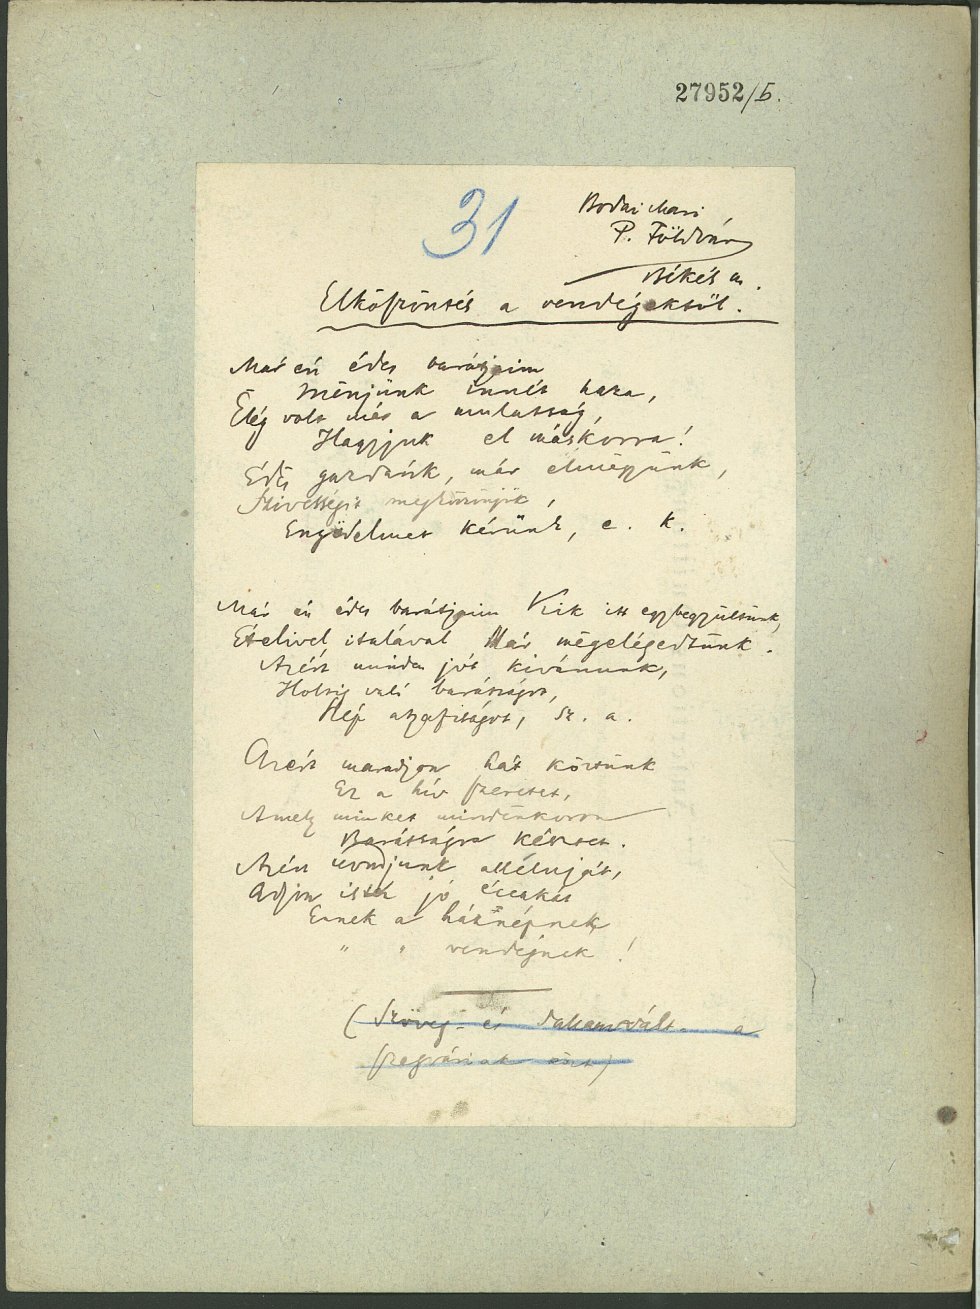 27952/5.
31
Bodai Mari
P. Földvár
Békés m.
Elköszönés a vendégektől.
Már én édes barátjaim
Mënjünk innét haza,
Elég volt má a mulatság,
Hagyjuk el máskorra!
Édës gazdánk, már elmëgyünk,
Szivességit megköszönjük,
Engëdelmet kérünk, e. k.
Már én édes barátjaim Kik itt egybegyültünk,
Etelivel italával Már mëgelégedtünk.
Azért minden jót kivánunk,
Holtig való barátságot,
Szép atyafiságot, sz. a.
Azért maradjon hát köztünk
Ez a hív szeretet,
Amely minket mindënkorra
Barátságra késztet.
Azért mondjunk alleluját,
Adjon istën jó éccakát
Ennek a háznépnek
" " vendéjnek!
(Szöveg- és dallamvált a
szegváriak közt)